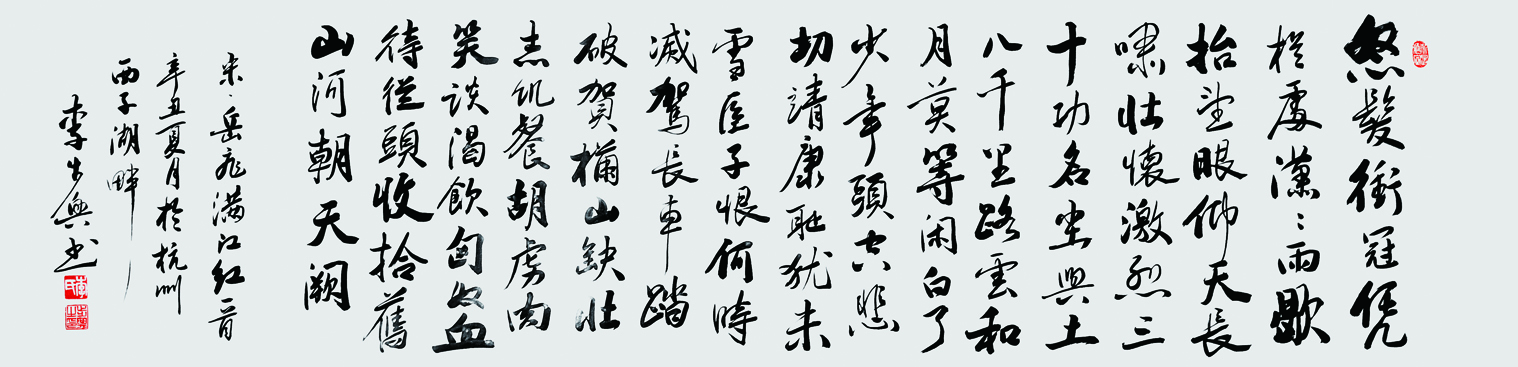 怒髮衝冠凭
栏處潇〻雨歇
抬望眼仰天長
啸壮懷激烈三
十功名尘與土
八千里路雲和
月莫等闲白了
少年頭空悲
切靖康耻犹未
雪臣子恨何時
滅駕長車踏
破賀蘭山缺壮
志飢餐胡虏肉
笑談渴飲匈奴血
待從頭收拾舊
山河朝天阙
宋·岳飛满江红一首
辛丑夏月於杭州
西子湖畔
李生興书